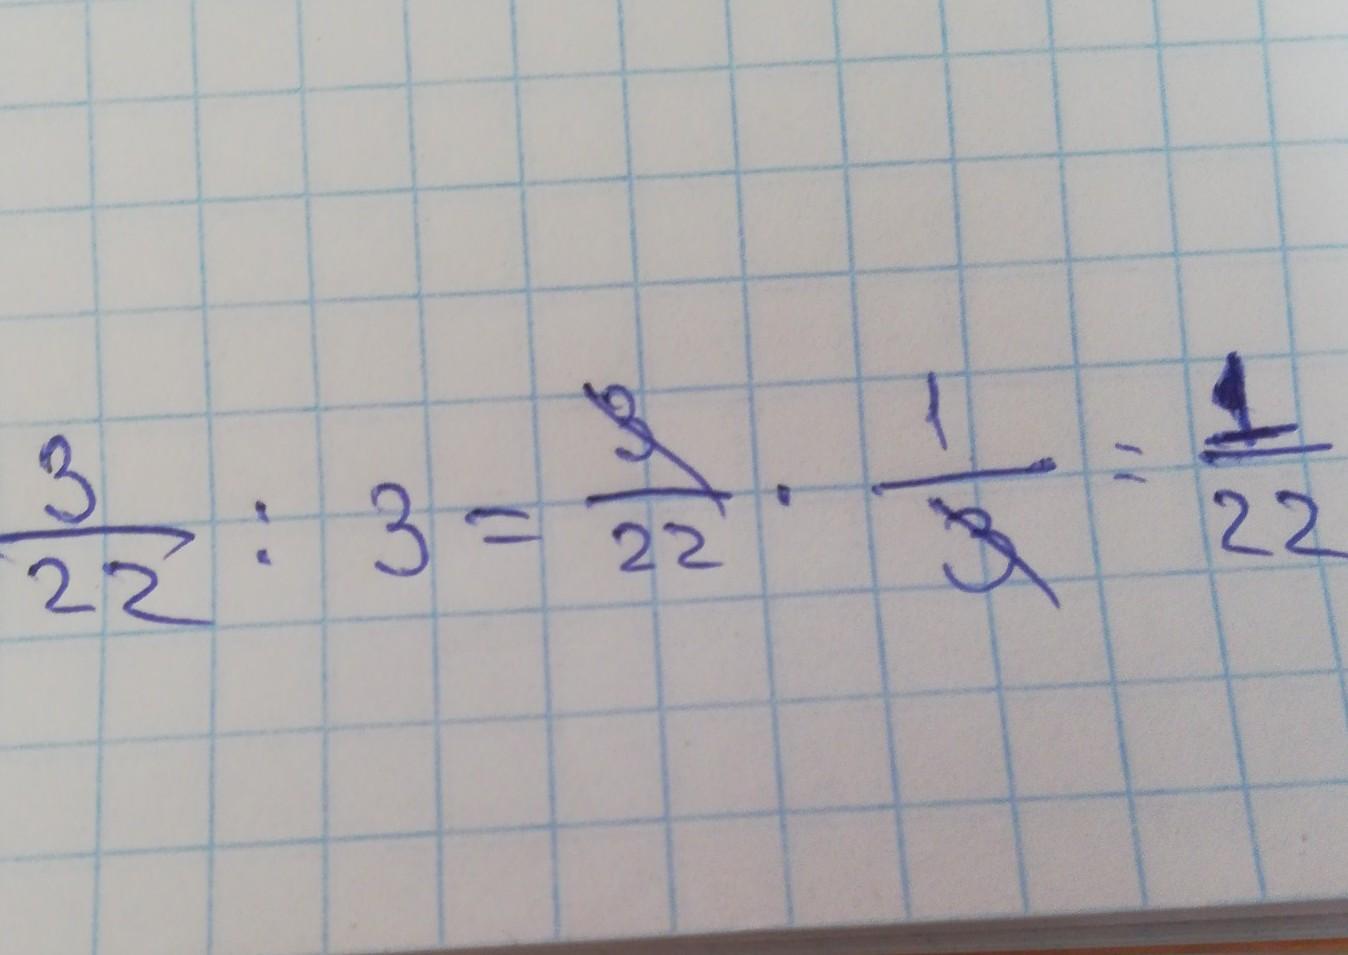 3/22 : 3 = 3/22 · 1/3 = 1/22